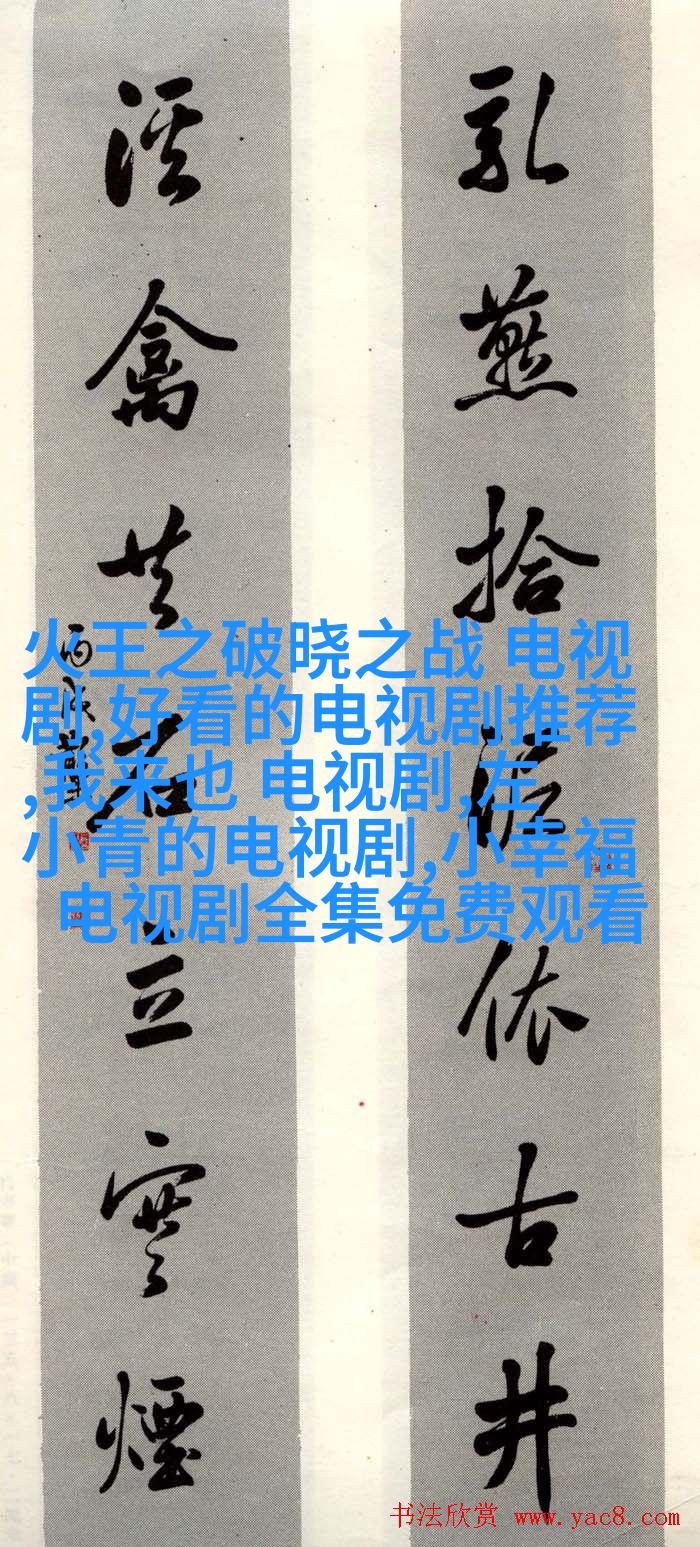 乳燕拾泥依古井
溪禽共石立寒煙
火王之破晓之战 电视
剧,好看的电视剧推荐
,我来也 电视剧,左
小青的电视剧,小幸福
电视剧全集免费观看
书法欣赏 www.yac8.com